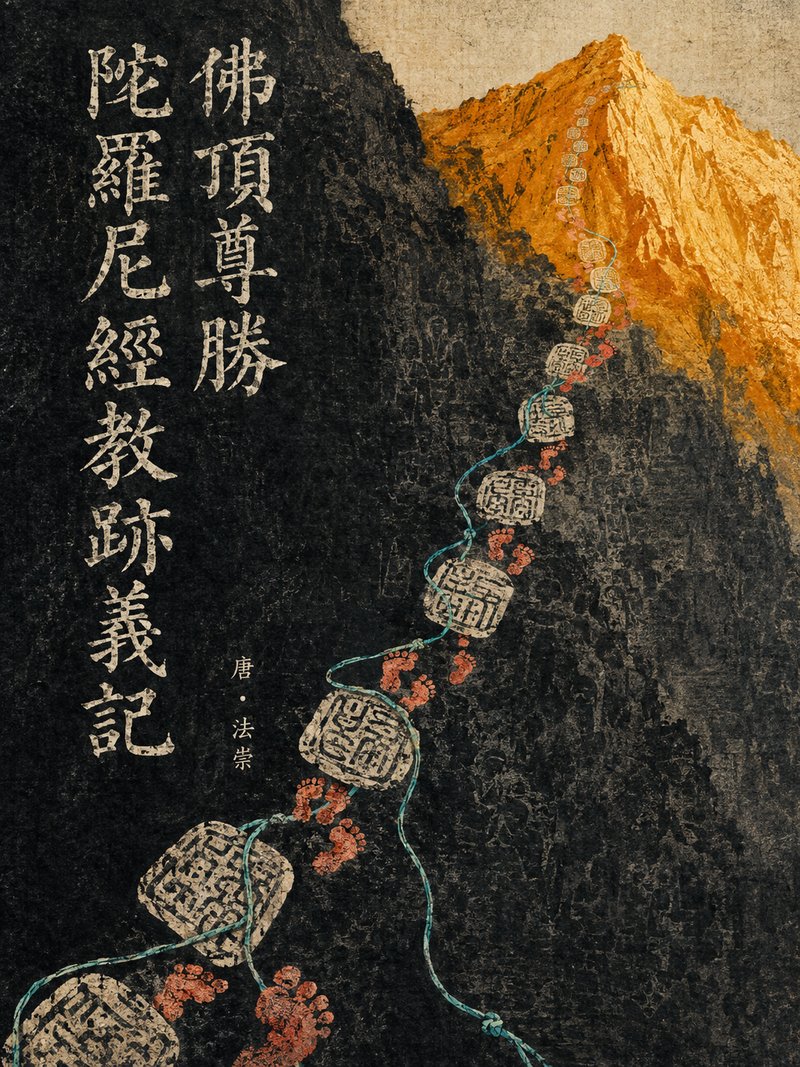 佛頂尊勝
陀羅尼經教跡義記
唐·法崇